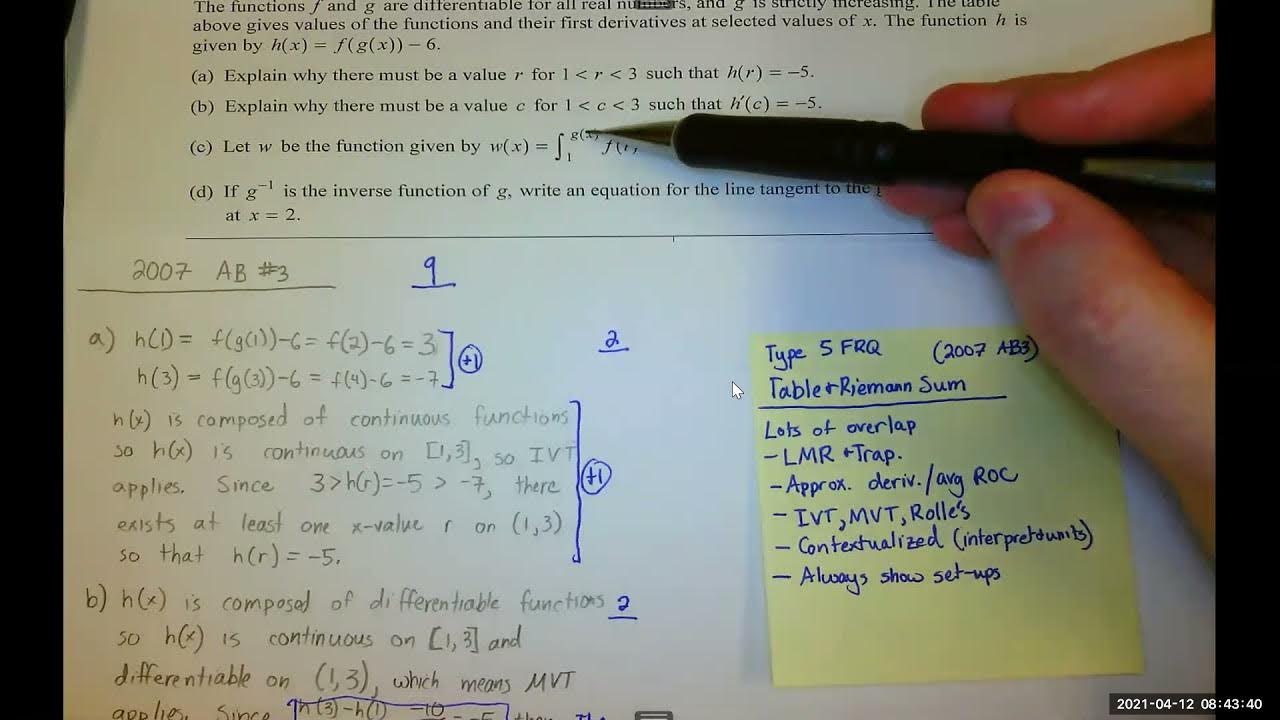 The functions f and g are differentiable for all real numbers, and g is strictly increasing. The table
above gives values of the functions and their first derivatives at selected values of x. The function h is
given by h(x) = f(g(x)) − 6.
(a) Explain why there must be a value r for 1 < r < 3 such that h(r) = −5.
(b) Explain why there must be a value c for 1 < c < 3 such that h′(c) = −5.
(c) Let w be the function given by w(x) = ∫₁^g(x) f(t)
(d) If g⁻¹ is the inverse function of g, write an equation for the line tangent to the
at x = 2.
2007 AB #3
9
a) h(1) = f(g(1))-6 = f(2)-6 = 3
+1
2
h(3) = f(g(3))-6 = f(4)-6 = -7
h(x) is composed of continuous functions
so h(x) is continuous on [1,3], so IVT
applies. Since 3>h(r)=-5 > -7, there
+1
exists at least one x-value r on (1,3)
so that h(r) = -5.
b) h(x) is composed of differentiable functions
2
so h(x) is continuous on [1,3] and
differentiable on (1,3), which means MVT
applies. Since h(3)-h(1) -10 -5
Type 5 FRQ (2007 AB3)
Table+Riemann Sum
Lots of overlap
- LMR + Trap.
- Approx. deriv./avg ROC
- IVT, MVT, Rolle's
- Contextualized (interpret+units)
- Always show set-ups
2021-04-12 08:43:40